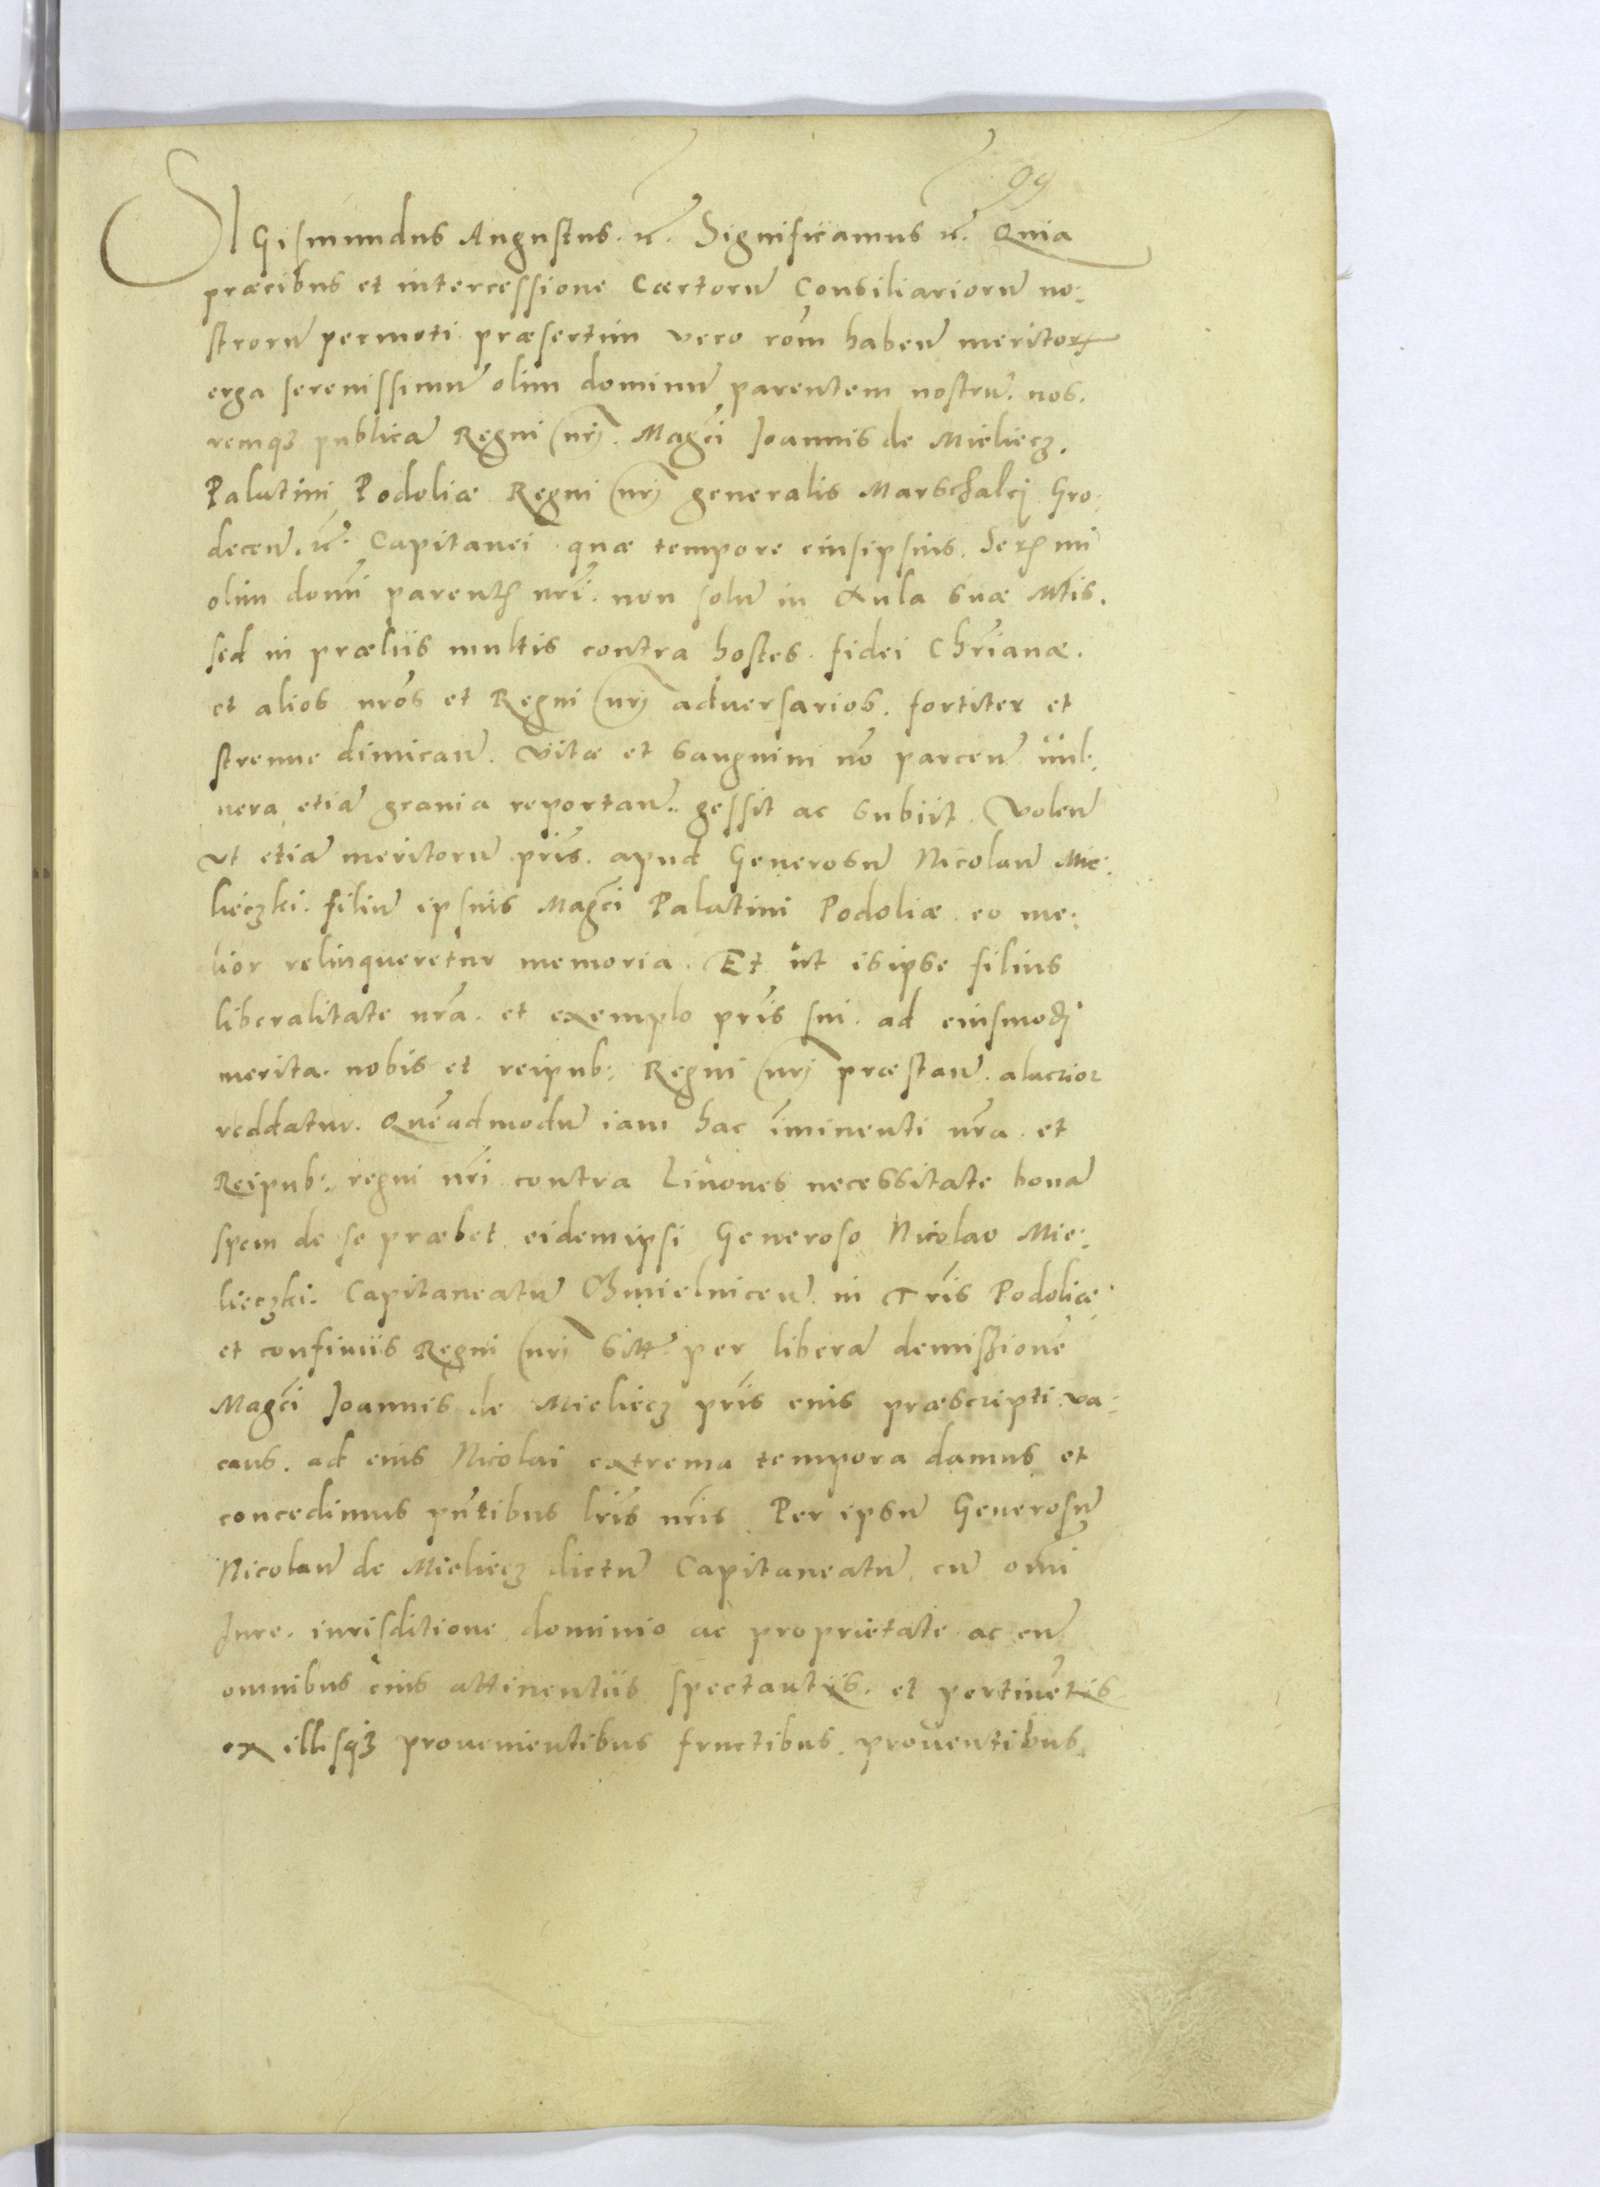 99
SIGismundus Augustus. &c. Significamus &c. Quia
præcibus et intercessione Cærtorũ Consiliariorũ no:
strorũ permoti præsertim vero rõm habeñ meritoꝝ
erga serenissimũ olim dominũ parentem nostrũ. nos.
remqꝫ publicã Regni nrĩ. Magci Ioannis de Mieliecz.
Palatini Podoliæ Regni nrĩ generalis Marschalcj Gro:
deceñ. &c. Capitanei quæ tempore eiusipsius. Serꝫmi
olim domĩ parentꝫ nrĩ. non solũ in Aula suæ Mtis.
sed in præliis multis contra hostes fidei Chrĩanæ.
et alios nrõs et Regni nrĩ aduersarios. fortiter et
strenue dimicañ. Vitæ et sanguini nõ parceñ uul:
nera etiã grauia reportañ. gessit ac subiit. Voleñ
vt etiã meritorũ prĩs. apud Generosũ Nicolaũ Mie:
lieczki. filiũ ipsius Magci Palatini Podoliæ eo me:
lior relinqueretur memoria. Et ut isipse filius
liberalitate nrã. et exemplo prĩs sui. ad eiusmodj
merita. nobis et reipub: Regni nrĩ præstañ. alacrior
reddatur. Quẽadmodũ iam hac ĩminenti nrã. et
Reipub: regni nrĩ contra Liuones necessitate bonã
spem de se præbet. eidemipsi Generoso Nicolao Mie:
lieczki. Capitaneatũ Chmielniceñ. in Trĩs Podoliæ
et confiniis Regni nrĩ sitt. per liberã demißionẽ
Magci Ioannis de Mieliecz prĩs eius præscripti va:
cans. ad eius Nicolai extrema tempora damus et
concedimus pñtibus lrĩs nrĩs. Per ipsũ Generosũ
Nicolaũ de Mieliecz dictũ Capitaneatũ cũ omĩ
Iure. iurisditione dominio ac proprietate ac cũ
omnibus eius attinentiis spectantiis. et pertinẽtiis
ex illisqꝫ prouenientibus fructibus. prouentibus.